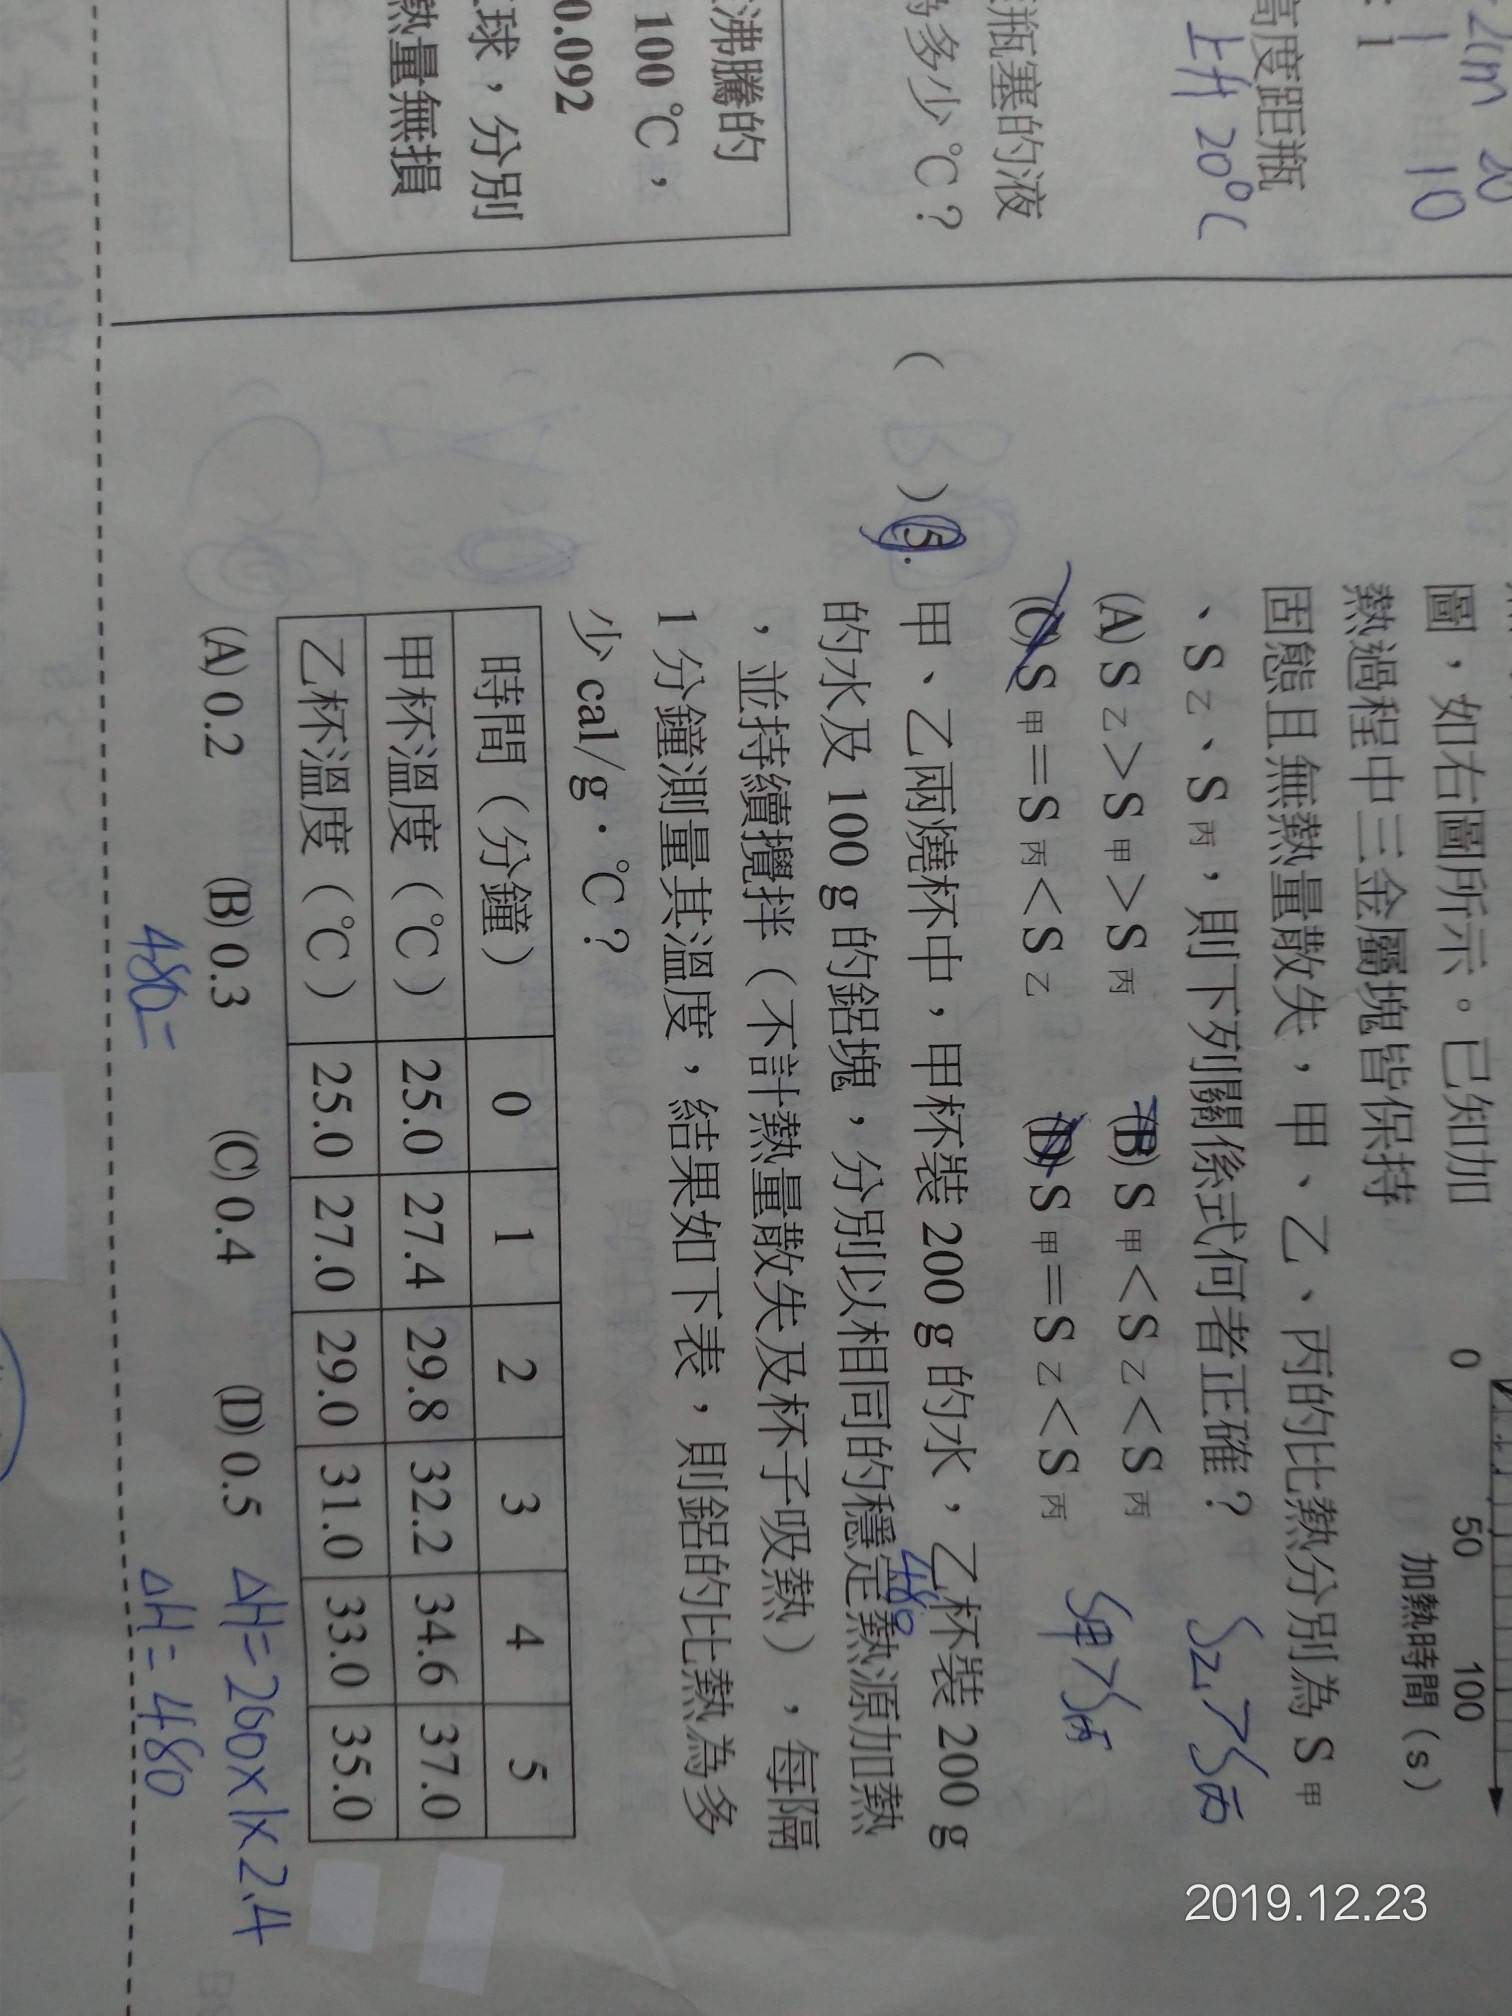 2cm 20
: 1 1 10
高度距瓶
上升20°C
瓶塞的液
多少 °C?
沸騰的
100 °C,
0.092
球,分別
熱量無損
圖,如右圖所示。已知加
熱過程中三金屬塊皆保持
0 50 100
加熱時間(s)
固態且無熱量散失,甲、乙、丙的比熱分別為 S甲
、S乙、S丙,則下列關係式何者正確?
S乙>S丙
(A) S乙>S甲>S丙 (B) S甲<S乙<S丙
S甲>S丙
(C) S甲=S丙<S乙 (D) S甲=S乙<S丙
( )15. 甲、乙兩燒杯中,甲杯裝 200 g 的水,乙杯裝 200 g
480
的水及 100 g 的鋁塊,分別以相同的穩定熱源加熱
,並持續攪拌(不計熱量散失及杯子吸熱),每隔
1 分鐘測量其溫度,結果如下表,則鋁的比熱為多
少 cal/g.°C?
時間(分鐘) 0 1 2 3 4 5
甲杯溫度(°C) 25.0 27.4 29.8 32.2 34.6 37.0
乙杯溫度(°C) 25.0 27.0 29.0 31.0 33.0 35.0
(A) 0.2 (B) 0.3 (C) 0.4 (D) 0.5
ΔH=200×1×2.4
480=
ΔH=480
2019.12.23